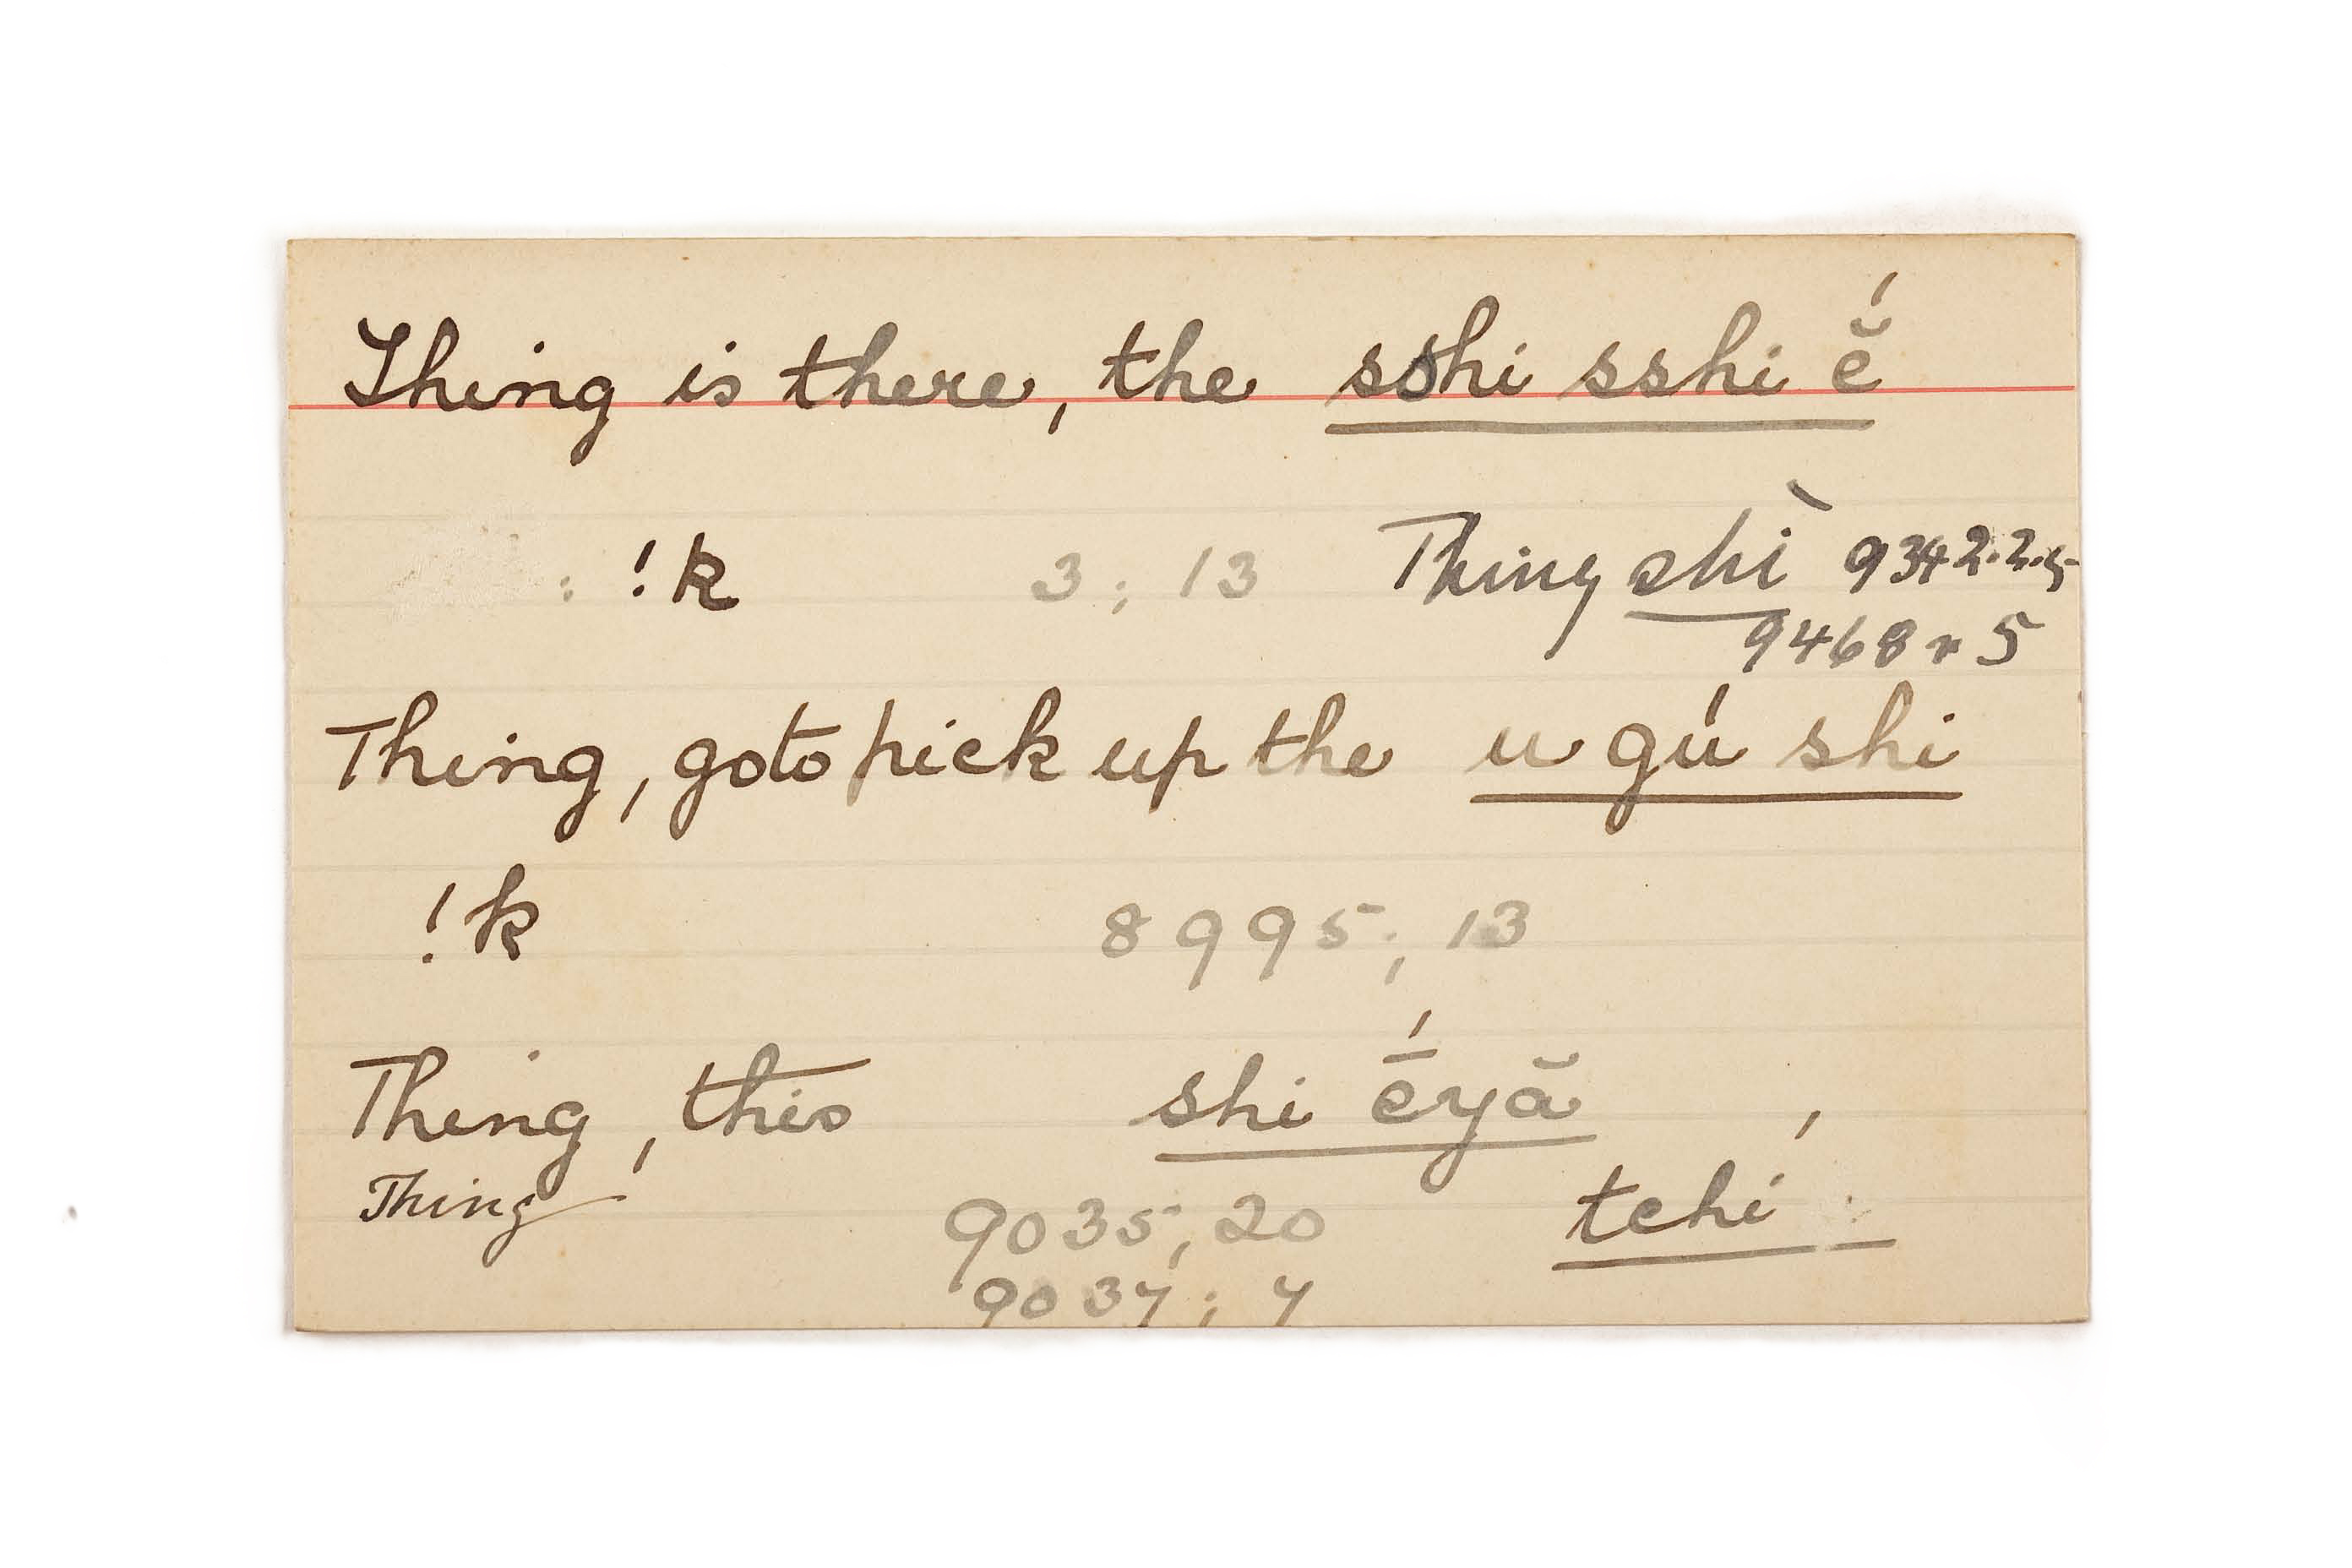 Thing is there, the sshi sshi ĕ́
: !k 3 ; 13 Thing shì 9342.2.5
9468 r 5
Thing, go to pick up the u gú shi
!k 8995 ; 13
Thing, this shi ḗyă
Thing 9035 ; 20 tchi
9037 ; 7